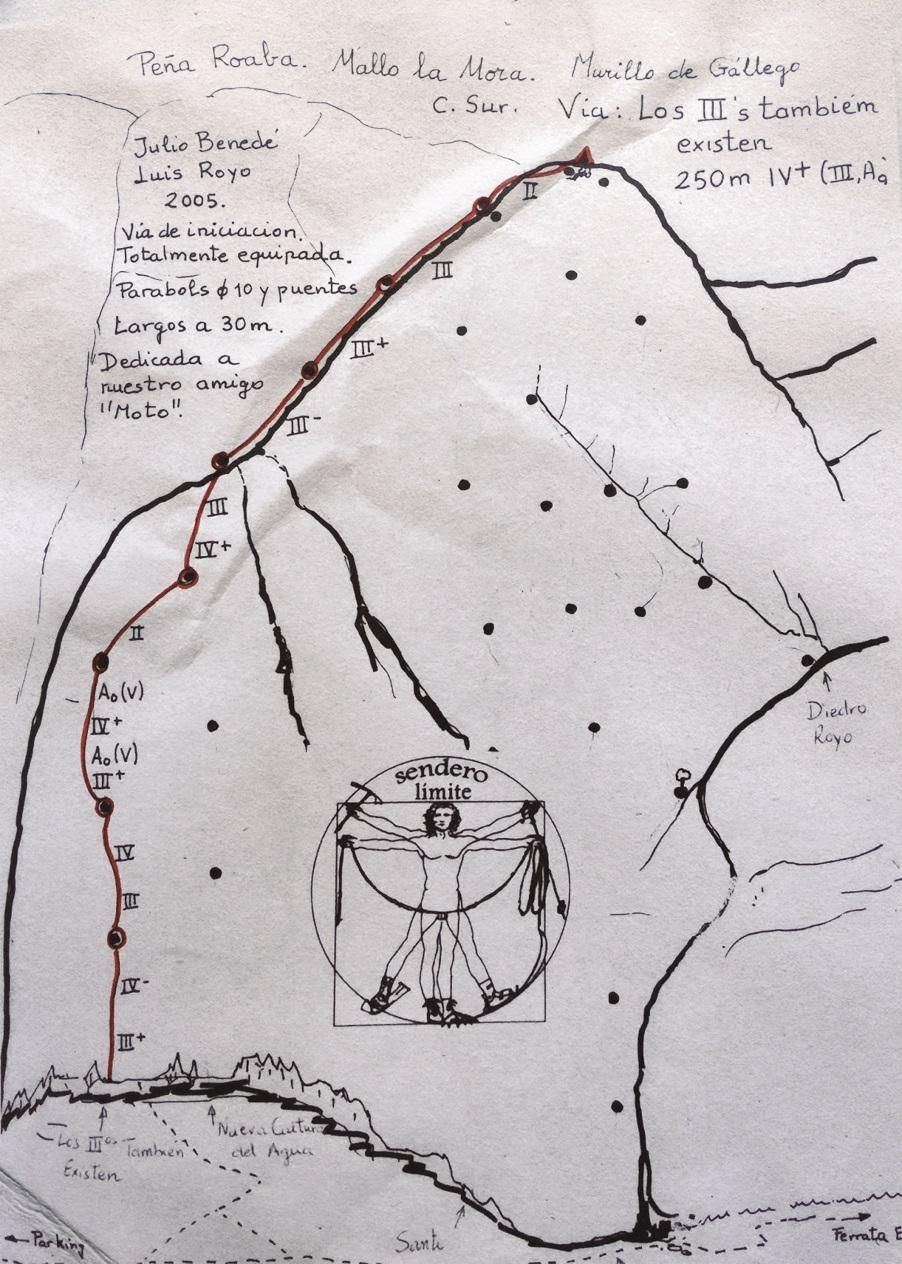 Peña Roaba. Mallo la Mora. Murillo de Gállego
C. Sur. Via: Los III's tambiém
existen
250m IV+ (III, A₀
Julio Benedé
Luis Royo
2005.
Via de iniciacion.
Totalmente equipada.
Parabols ϕ 10 y puentes
Largos a 30m.
Dedicada a
nuestro amigo
"Moto".
II
III
III+
III-
III
IV+
II
A₀(V)
IV+
A₀(V)
III+
IV
III
IV-
III+
Diedro
Royo
sendero
límite
Los IIIos También
Existen
Nueva Cultura
del Agua
Santi
Parking
Ferrata E